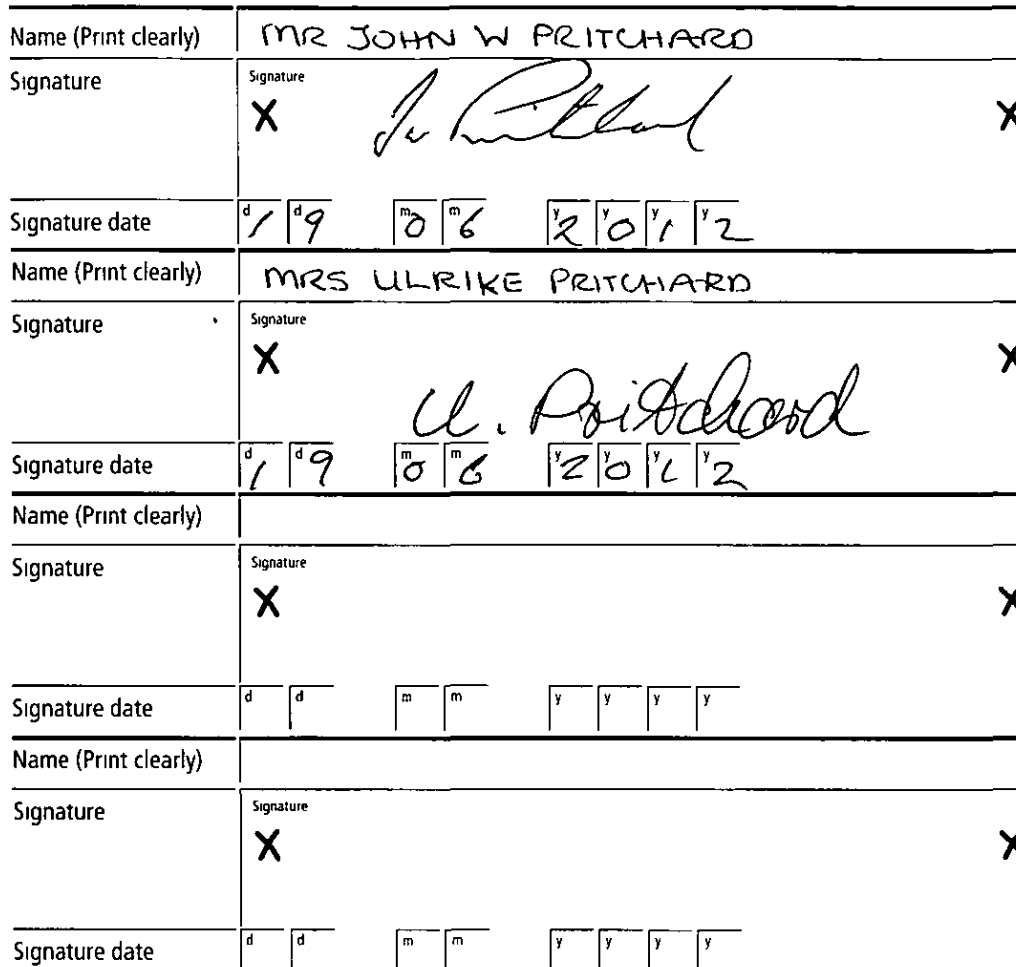 Name (Print clearly) MR JOHN W PRITCHARD
Signature Signature
X J W Pritchard X
Signature date d 1 d 9 m 0 m 6 y 2 y 0 y 1 y 2
Name (Print clearly) MRS ULRIKE PRITCHARD
Signature Signature
X U. Pritchard X
Signature date d 1 d 9 m 0 m 6 y 2 y 0 y 1 y 2
Name (Print clearly)
Signature Signature
X X
Signature date d d m m y y y y
Name (Print clearly)
Signature Signature
X X
Signature date d d m m y y y y